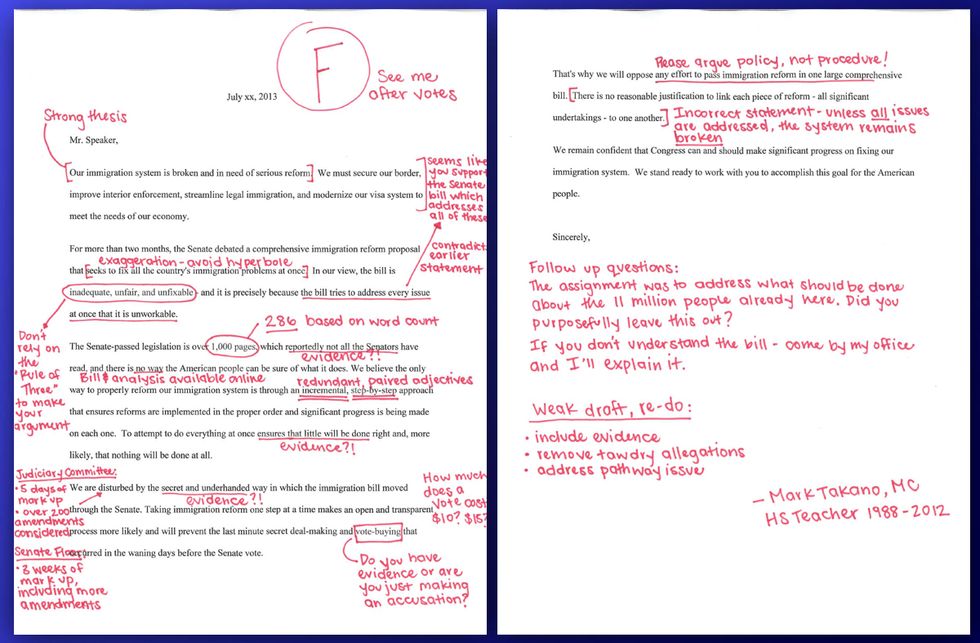 F
See me
after votes
July xx, 2013
Strong thesis
Mr. Speaker,
Our immigration system is broken and in need of serious reform. We must secure our border,
improve interior enforcement, streamline legal immigration, and modernize our visa system to
meet the needs of our economy.
seems like
you support
the Senate
bill which
addresses
all of these
For more than two months, the Senate debated a comprehensive immigration reform proposal
exaggeration - avoid hyperbole
that seeks to fix all the country's immigration problems at once. In our view, the bill is
inadequate, unfair, and unfixable - and it is precisely because the bill tries to address every issue
at once that it is unworkable.
contradicts
earlier
statement
286 based on word count
Don't
rely on
the
"Rule of
Three"
to make
your
argument
The Senate-passed legislation is over 1,000 pages, which reportedly not all the Senators have
evidence?!
read, and there is no way the American people can be sure of what it does. We believe the only
Bill & analysis available online
redundant, paired adjectives
way to properly reform our immigration system is through an incremental, step-by-step approach
that ensures reforms are implemented in the proper order and significant progress is being made
on each one. To attempt to do everything at once ensures that little will be done right and, more
evidence?!
likely, that nothing will be done at all.
Judiciary Committee:
• 5 days of
mark up
• over 200
amendments
considered
Senate Floor:
• 3 weeks of
mark up,
including more
amendments
We are disturbed by the secret and underhanded way in which the immigration bill moved
evidence?!
through the Senate. Taking immigration reform one step at a time makes an open and transparent
process more likely and will prevent the last minute secret deal-making and vote-buying that
occurred in the waning days before the Senate vote.
How much
does a
vote cost
$10? $15?
Do you have
evidence or are
you just making
an accusation?
Please argue policy, not procedure!
That's why we will oppose any effort to pass immigration reform in one large comprehensive
bill. There is no reasonable justification to link each piece of reform - all significant
undertakings - to one another.
Incorrect statement - unless all issues
are addressed, the system remains
broken
We remain confident that Congress can and should make significant progress on fixing our
immigration system. We stand ready to work with you to accomplish this goal for the American
people.
Sincerely,
Follow up questions:
The assignment was to address what should be done
about the 11 million people already here. Did you
purposefully leave this out?
If you don't understand the bill - come by my office
and I'll explain it.
Weak draft, re-do:
• include evidence
• remove tawdry allegations
• address pathway issue
- Mark Takano, MC
HS Teacher 1988-2012